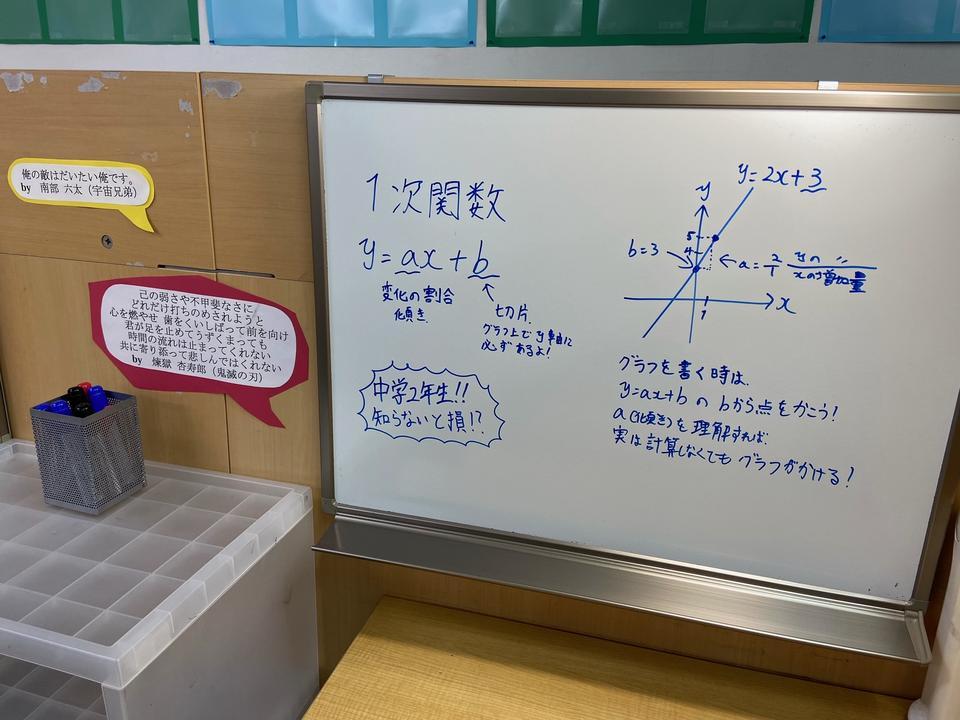 俺の敵はだいたい俺です。
by 南部 六太（宇宙兄弟）
己の弱さや不甲斐なさに
どれだけ打ちのめされようと
心を燃やせ 歯をくいしばって前を向け
君が足を止めてうずくまっても
時間の流れは止まってくれない
共に寄り添って悲しんではくれない
by 煉獄 杏寿郎（鬼滅の刃）
1次関数
y=ax+b
変化の割合
傾き
切片
グラフ上でy軸に
必ずあるよ!
中学2年生!!
知らないと損!?
y=2x+3
y
5
4
b=3
←a=2/1 yの 〃/xの増加量
x
1
グラフを書く時は、
y=ax+b の bから点をかこう!
a(傾き)を理解すれば、
実は計算しなくても グラフがかける!